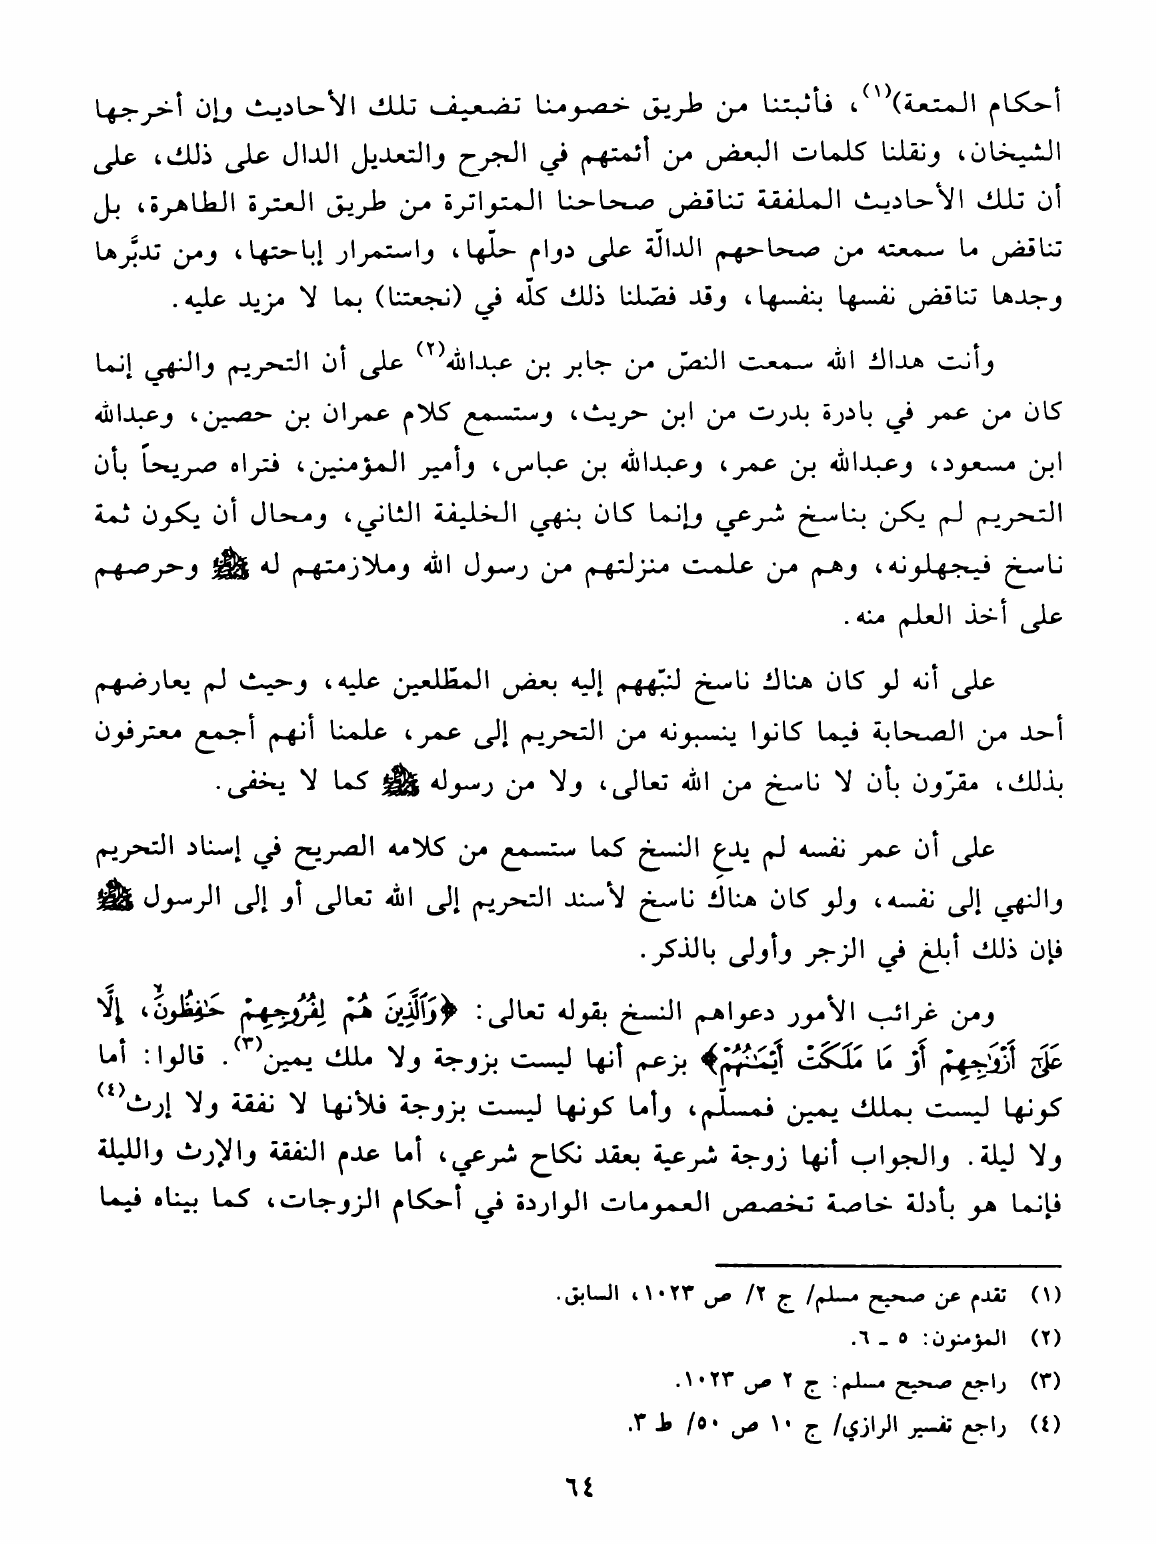 أحكام المتعة)(١)، فأثبتنا من طريق خصومنا تضعيف تلك الأحاديث وإن أخرجها
الشيخان، ونقلنا كلمات البعض من أئمتهم في الجرح والتعديل الدال على ذلك، على
أن تلك الأحاديث الملفقة تناقض صحاحنا المتواترة من طريق العترة الطاهرة، بل
تناقض ما سمعته من صحاحهم الدالّة على دوام حلّها، واستمرار إباحتها، ومن تدبَّرها
وجدها تناقض نفسها بنفسها، وقد فصّلنا ذلك كلّه في (نجعتنا) بما لا مزيد عليه.
وأنت هداك الله سمعت النصّ من جابر بن عبدالله(٢) على أن التحريم والنهي إنما
كان من عمر في بادرة بدرت من ابن حريث، وستسمع كلام عمران بن حصين، وعبدالله
ابن مسعود، وعبدالله بن عمر، وعبدالله بن عباس، وأمير المؤمنين، فتراه صريحاً بأن
التحريم لم يكن بناسخ شرعي وإنما كان بنهي الخليفة الثاني، ومحال أن يكون ثمة
ناسخ فيجهلونه، وهم من علمت منزلتهم من رسول الله وملازمتهم له ﷺ وحرصهم
على أخذ العلم منه.
على أنه لو كان هناك ناسخ لنبّههم إليه بعض المطّلعين عليه، وحيث لم يعارضهم
أحد من الصحابة فيما كانوا ينسبونه من التحريم إلى عمر، علمنا أنهم أجمع معترفون
بذلك، مقرّون بأن لا ناسخ من الله تعالى، ولا من رسوله ﷺ كما لا يخفى.
على أن عمر نفسه لم يدعِ النسخ كما ستسمع من كلامه الصريح في إسناد التحريم
والنهي إلى نفسه، ولو كان هناك ناسخ لأسند التحريم إلى الله تعالى أو إلى الرسول ﷺ
فإن ذلك أبلغ في الزجر وأولى بالذكر.
ومن غرائب الأمور دعواهم النسخ بقوله تعالى: ﴿وَٱلَّذِينَ هُمْ لِفُرُوجِهِمْ حَٰفِظُونَۙ، إِلَّا
عَلَىٰٓ أَزْوَٰجِهِمْ أَوْ مَا مَلَكَتْ أَيْمَٰنُهُمْ﴾ بزعم أنها ليست بزوجة ولا ملك يمين(٣). قالوا: أما
كونها ليست بملك يمين فمسلّم، وأما كونها ليست بزوجة فلأنها لا نفقة ولا إرث(٤)
ولا ليلة. والجواب أنها زوجة شرعية بعقد نكاح شرعي، أما عدم النفقة والإرث والليلة
فإنما هو بأدلة خاصة تخصص العمومات الواردة في أحكام الزوجات، كما بيناه فيما
(١) تقدم عن صحيح مسلم/ ج ٢/ ص ١٠٢٣، السابق.
(٢) المؤمنون: ٥ - ٦.
(٣) راجع صحيح مسلم: ج ٢ ص ١٠٢٣.
(٤) راجع تفسير الرازي/ ج ١٠ ص ٥٠/ ط ٣.
٦٤